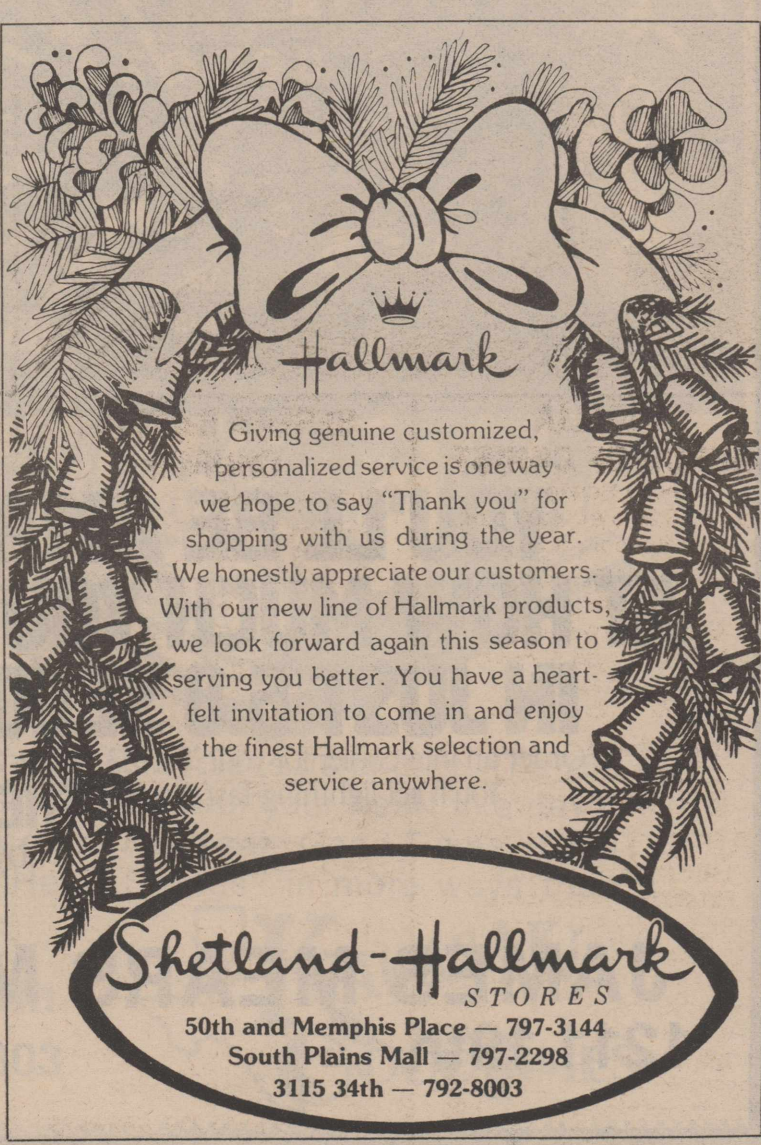 Hallmark
Giving genuine customized,
personalized service is one way
we hope to say “Thank you” for
shopping with us during the year.
We honestly appreciate our customers.
With our new line of Hallmark products,
we look forward again this season to
serving you better. You have a heart-
felt invitation to come in and enjoy
the finest Hallmark selection and
service anywhere.
Shetland-Hallmark
STORES
50th and Memphis Place — 797-3144
South Plains Mall — 797-2298
3115 34th — 792-8003